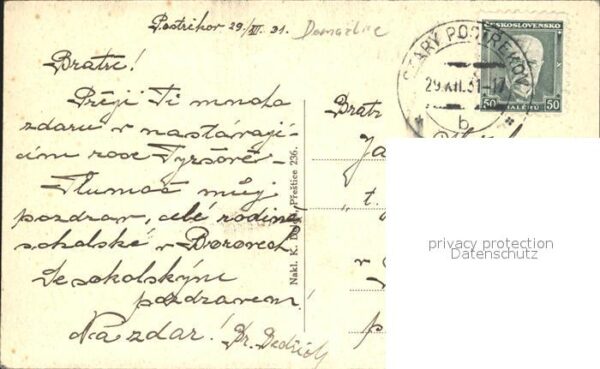 Postřekov 29./XII. 31. Domažlice
Bratře!
Přeji Ti mnoho
zdaru v nastávají-
cím roce Tyršově-
Tlumoč můj
pozdrav, celé rodině
sokolské v Borovech
Se sokolským
pozdravem
Nazdar!
Nakl. K. Přeštice 236.
ČESKOSLOVENSKO
50 HALÉŘŮ 50
STARÝ POSTŘEKOV
29.XII.31-17
b
Bratr
Ja
"t.
v
p
privacy protection
Datenschutz